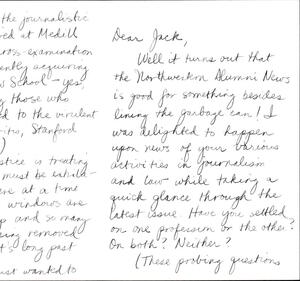 the journalistic
ed at Medill
ross-examination
ently acquiring
w School - yes,
g those who
d to the virulent
Stanford
)
stice is treating
must be exhila-
ere at a time
windows are
p and so many
ing removed
t's long past
ust wanted to
Dear Jack,
Well it turns out that
the Northwestern Alumni News
is good for something besides
lining the garbage can! I
was delighted to happen
upon news of your various
activities in journalism
and law while taking a
quick glance through the
latest issue. Have you settled
on one profession or the other?
On both? Neither?
(These probing questions